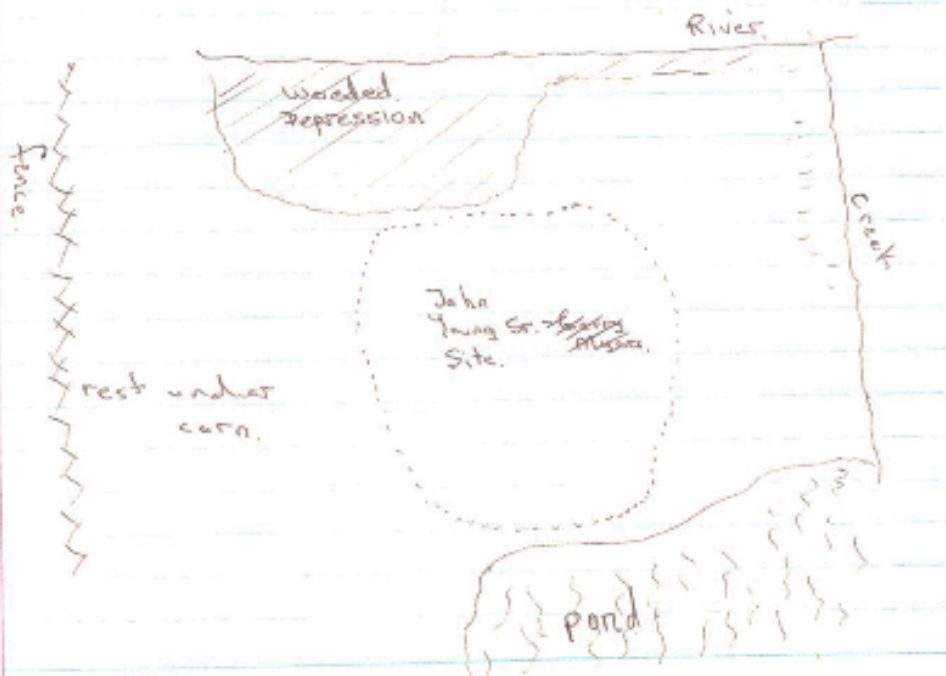 River.
Wooded
Depression
fence.
Creek
John
Young Sr.
Site.
rest under
corn.
pond